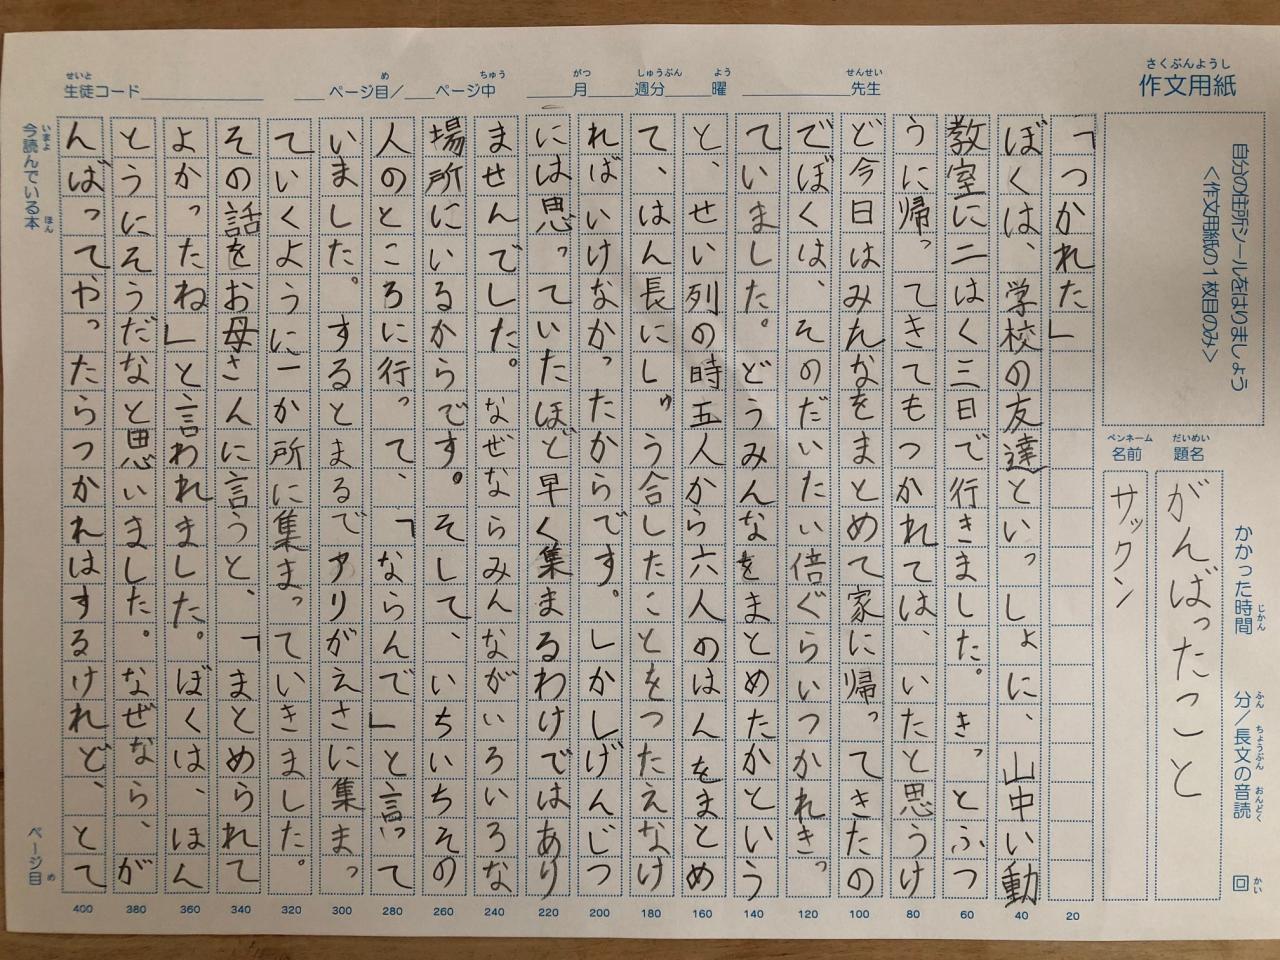 さくぶんようし
作文用紙
せいと
生徒コード
め
ページ目／
ちゅう
ページ中
がつ
月
しゅうぶん
週分
よう
曜
せんせい
先生
自分の住所シールをはりましょう
＜作文用紙の１枚目のみ＞
だいめい
題名
がんばったこと
ペンネーム
名前
サックン
かかった時間
じかん
分／長文の音読
ふん
ちょうぶん
おんどく
回
かい
「つかれた」
ぼくは、学校の友達といっしょに、山中い動
教室に二はく三日で行きました。きっとふつ
うに帰ってきてもつかれては、いたと思うけ
ど今日はみんなをまとめて家に帰ってきたの
でぼくは、そのだいたい倍ぐらいつかれきっ
ていました。どうみんなをまとめたかという
と、せい列の時五人から六人のはんをまとめ
て、はん長にしゅう合したことをつたえなけ
ればいけなかったからです。しかしげんじつ
には思っていたほど早く集まるわけではあり
ませんでした。なぜならみんながいろいろな
場所にいるからです。そして、いちいちその
人のところに行って、「ならんで」と言って
いました。するとまるでアリがえさに集まっ
ていくように一か所に集まっていきました。
その話をお母さんに言うと、「まとめられて
よかったね」と言われました。ぼくは、ほん
とうにそうだなと思いました。なぜなら、が
んばってやったらつかれはするけれど、とて
20
40
60
80
100
120
140
160
180
200
220
240
260
280
300
320
340
360
380
400
今読んでいる本
いまよ
ほん
ページ目
め